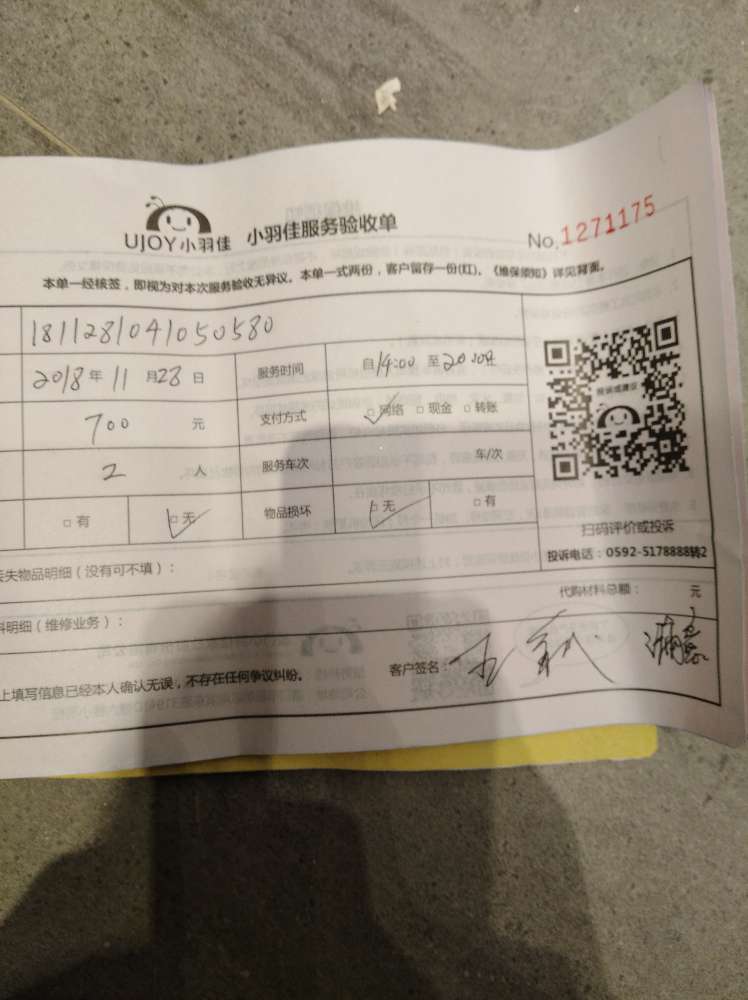 UJOY小羽佳 小羽佳服务验收单 No.1271175
本单一经核签，即视为对本次服务验收无异议。本单一式两份，客户留存一份(红)。《维保须知》详见背面。
181128104105０580
2018年11月28日 服务时间 自14:00至20:00
700 元 支付方式 □网络 □现金 □转账
2 人 服务车次 车/次
□有 □无 物品损坏 □无 □有
投诉或建议
扫码评价或投诉
投诉电话：0592-5178888转2
失物品明细（没有可不填）：
料明细（维修业务）： 代购材料总额： 元
上填写信息已经本人确认无误，不存在任何争议纠纷。 客户签名：